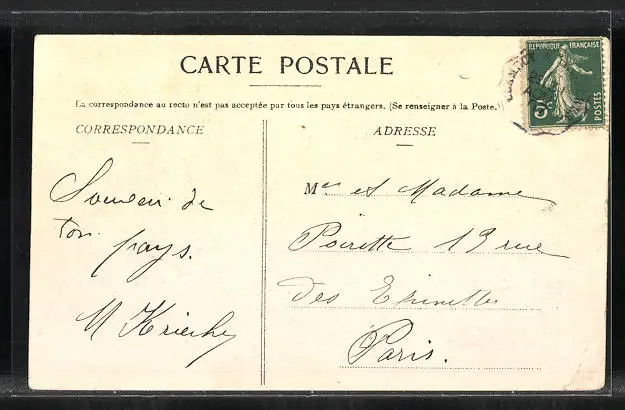 CARTE POSTALE
La correspondance au recto n'est pas acceptée par tous les pays étrangers. (Se renseigner à la Poste.)
CORRESPONDANCE
ADRESSE
REPUBLIQUE FRANÇAISE
5c
POSTES
Souvenir de
ton
pays.
M
Mr et Madame
Poirette 19 rue
des Epinettes
Paris.